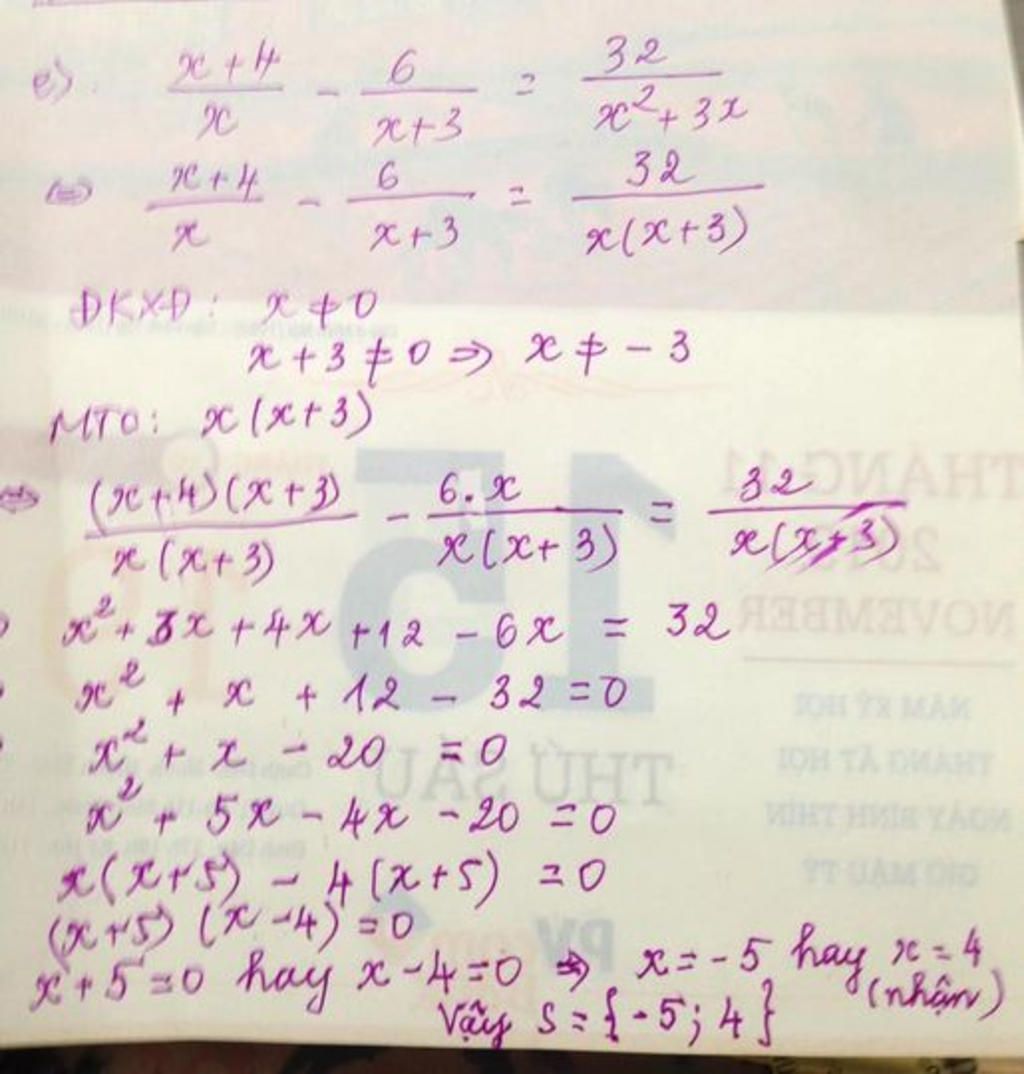 e) (x+4)/x - 6/(x+3) = 32/(x²+3x)
⇔ (x+4)/x - 6/(x+3) = 32/(x(x+3))
ĐKXĐ: x ≠ 0
x + 3 ≠ 0 ⇒ x ≠ - 3
MTC: x(x+3)
⇔ ((x+4)(x+3))/(x(x+3)) - (6.x)/(x(x+3)) = 32/(x(x+3))
x² + 3x + 4x + 12 - 6x = 32
x² + x + 12 - 32 = 0
x² + x - 20 = 0
x² + 5x - 4x - 20 = 0
x(x+5) - 4(x+5) = 0
(x+5) (x-4) = 0
x+5 = 0 hay x-4 = 0 ⇒ x = -5 hay x = 4
(nhận)
Vậy S = {-5; 4}
THÁNG 11
NOVEMBER
15
THỨ SÁU
NĂM KỶ HỢI
THÁNG ẤT HỢI
NGÀY BÍNH THÌN
GIỜ MẬU TÝ
PVcom